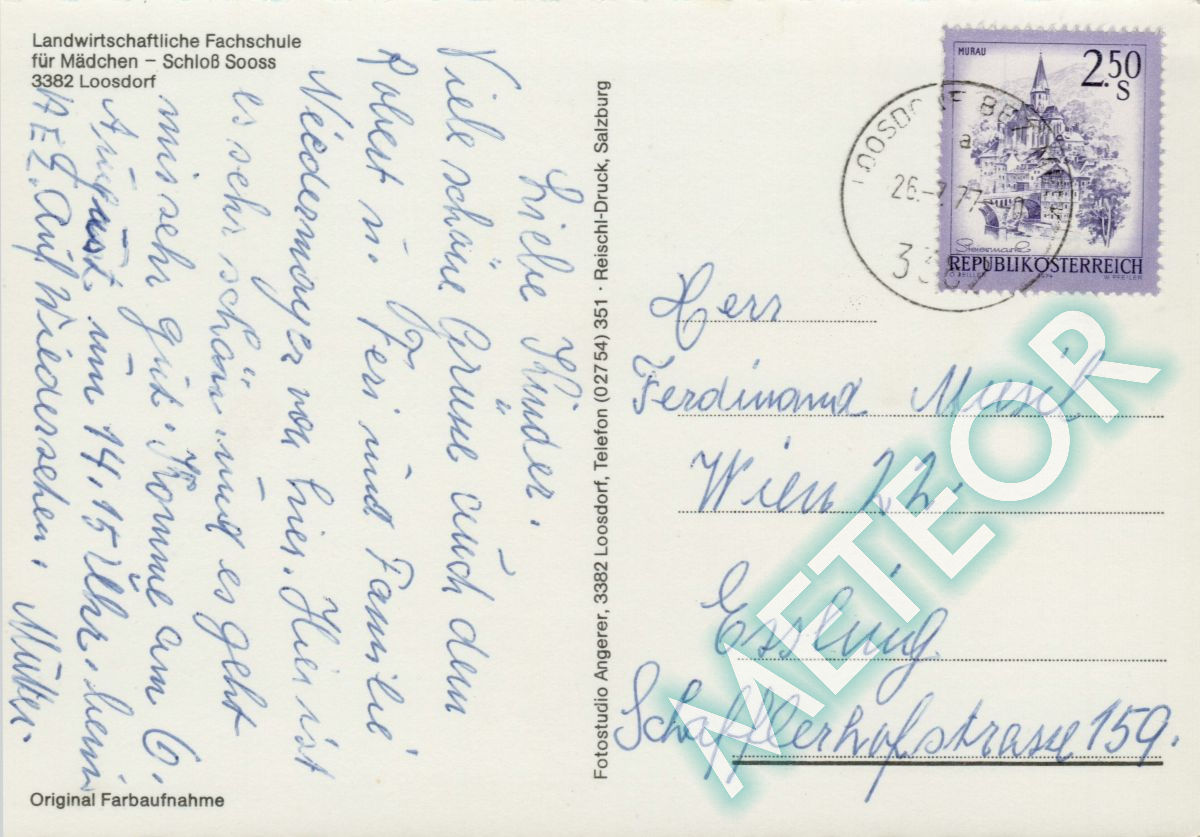 Landwirtschaftliche Fachschule
für Mädchen – Schloß Sooss
3382 Loosdorf
Liebe Kinder.
Viele schöne Grüße euch dem
Robert u. Fr. Feri und Familie
Niedermayer von hier. Hier ist
es sehr schön und es geht
mir sehr gut. Komme am 6.
August um 14,15 Uhr. beim
Auf Wiedersehen. Mutter.
Original Farbaufnahme
Fotostudio Angerer, 3382 Loosdorf, Telefon (027 54) 351 · Reischl-Druck, Salzburg
MURAU
2.50
S
Steiermark
REPUBLIK ÖSTERREICH
LOOSDORF BE
a
26.-7.77
Herr
Ferdinand
Wien 22.
Essling
Schafflerhofstrasse 159.
METEOR